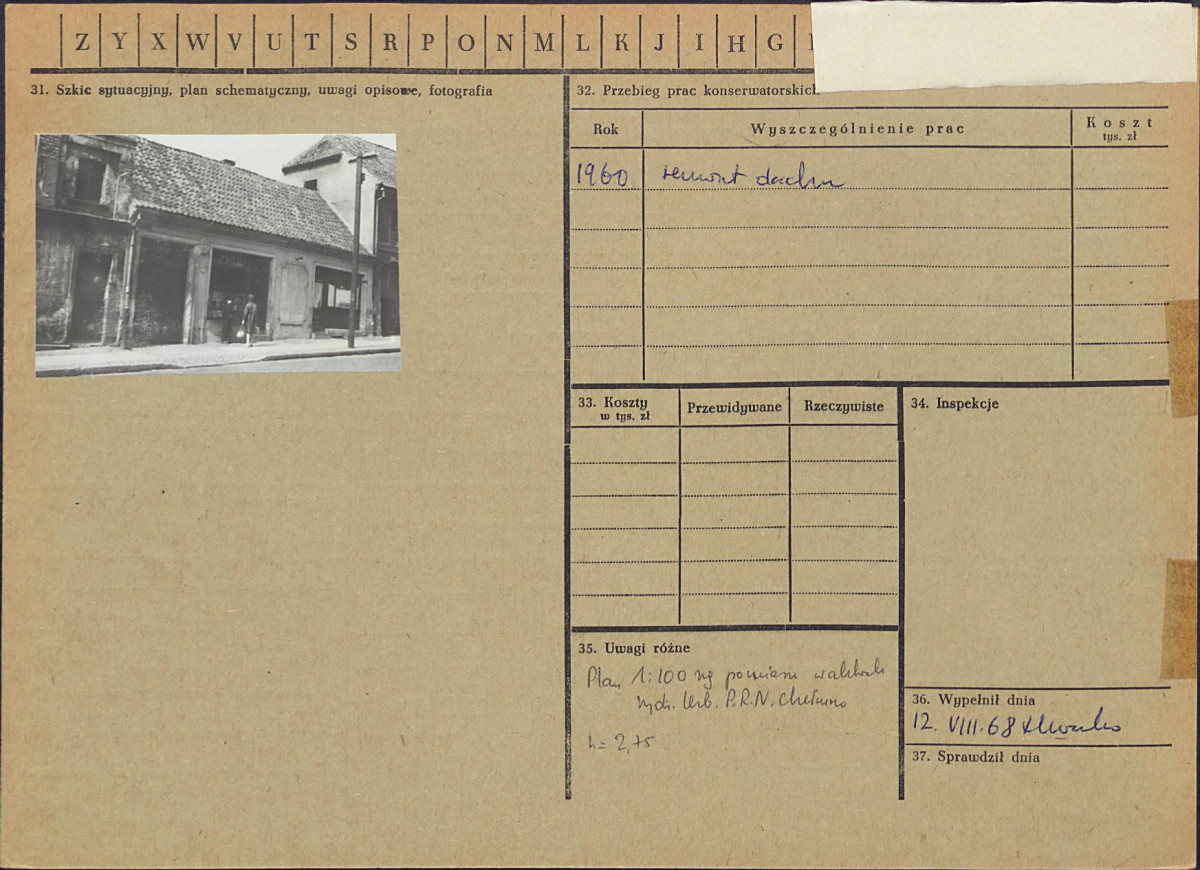 Z Y X W V U T S R P O N M L K J I H G
31. Szkic sytuacyjny, plan schematyczny, uwagi opisowe, fotografia
32. Przebieg prac konserwatorskich
Rok Wyszczególnienie prac Koszt
tys. zł
1960 remont dachu
33. Koszty Przewidywane Rzeczywiste
w tys. zł
34. Inspekcje
35. Uwagi różne
Plan 1:100 wg pomiaru
P.R.N. Chełmno
h = 2,75
36. Wypełnił dnia
12. VIII. 68
37. Sprawdził dnia